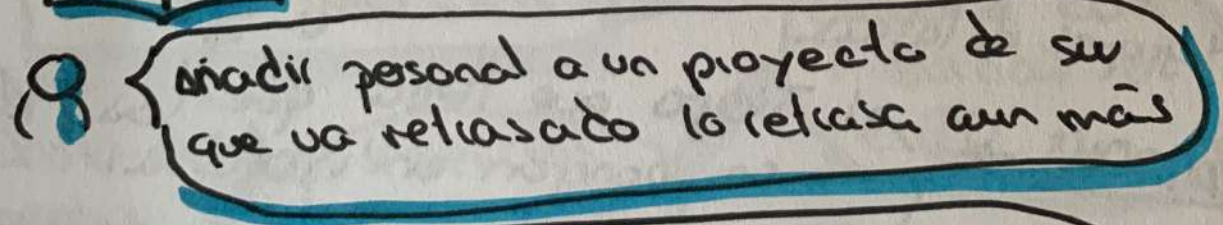 añadir personal a un proyecto de sw
que va retrasado lo retrasa aun más